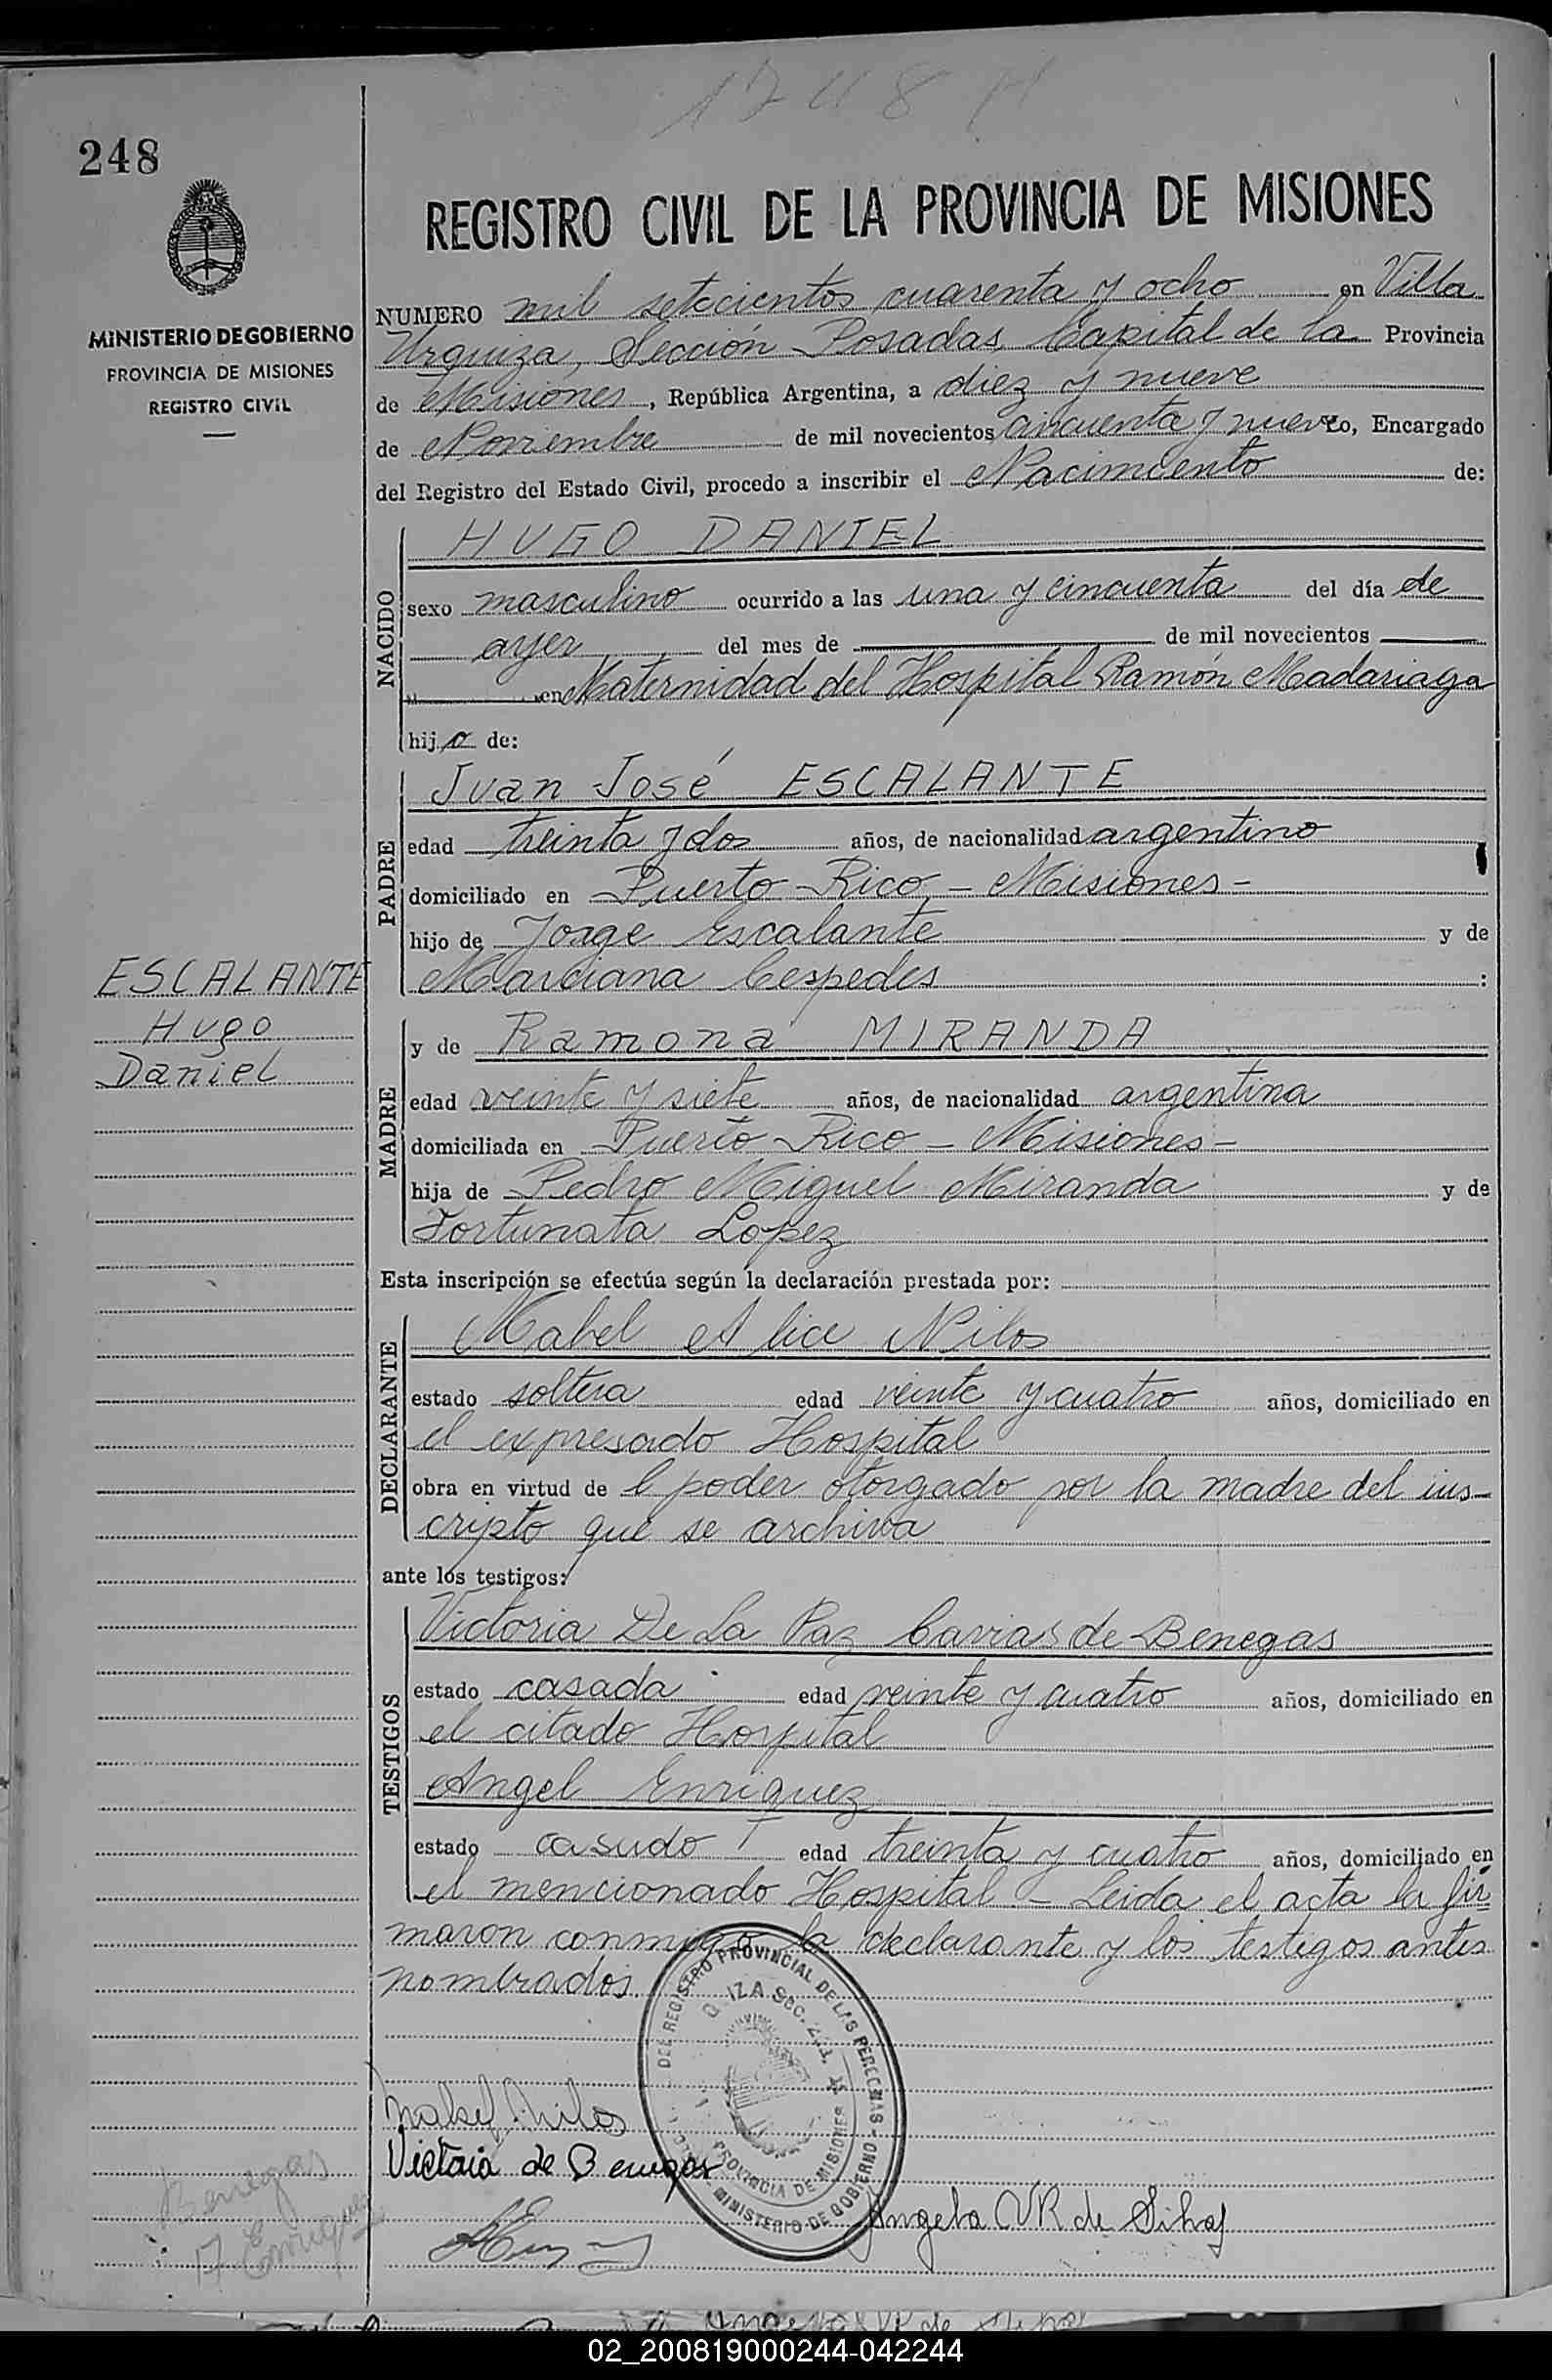 1748
248
MINISTERIO DE GOBIERNO
PROVINCIA DE MISIONES
REGISTRO CIVIL
REGISTRO CIVIL DE LA PROVINCIA DE MISIONES
NUMERO mil setecientos cuarenta y ocho en Villa
Urquiza, Sección Posadas, Capital de la Provincia
de Misiones, República Argentina, a diez y nueve
de Noviembre de mil novecientos cincuenta y nueve yo, Encargado
del Registro del Estado Civil, procedo a inscribir el Nacimiento de:
NACIDO
HUGO DANIEL
sexo masculino ocurrido a las una y cincuenta del día de
ayer del mes de de mil novecientos
en Maternidad del Hospital Ramón Madariaga
hijo de:
PADRE
Juan José ESCALANTE
edad treinta y dos años, de nacionalidad argentino
domiciliado en Puerto Rico - Misiones -
hijo de Jorge Escalante y de
Marciana Cespedes :
ESCALANTE
Hugo
Daniel
MADRE
y de Ramona MIRANDA
edad veinte y siete años, de nacionalidad argentina
domiciliada en Puerto Rico - Misiones -
hija de Pedro Miguel Miranda y de
Fortunata Lopez
Esta inscripción se efectúa según la declaración prestada por:
DECLARANTE
Mabel Alice Nilos
estado soltera edad veinte y cuatro años, domiciliado en
el expresado Hospital
obra en virtud de l poder otorgado por la madre del ins-
cripto que se archiva
ante los testigos:
TESTIGOS
Victoria De La Paz de Benegas
estado casada edad veinte y cuatro años, domiciliado en
el citado Hospital
Angel Enriquez
estado casado edad treinta y cuatro años, domiciliado en
el mencionado Hospital - Leida el acta la fir
maron conmigo la declarante y los testigos antes
nombrados.
DEL REGISTRO PROVINCIAL DE LAS PERSONAS
MINISTERIO DE GOBIERNO
PROVINCIA DE MISIONES
Mabel Nilos
Victoria de Benegas
Benegas
A. Enriquez
Angela VR de Silva
02_200819000244-042244